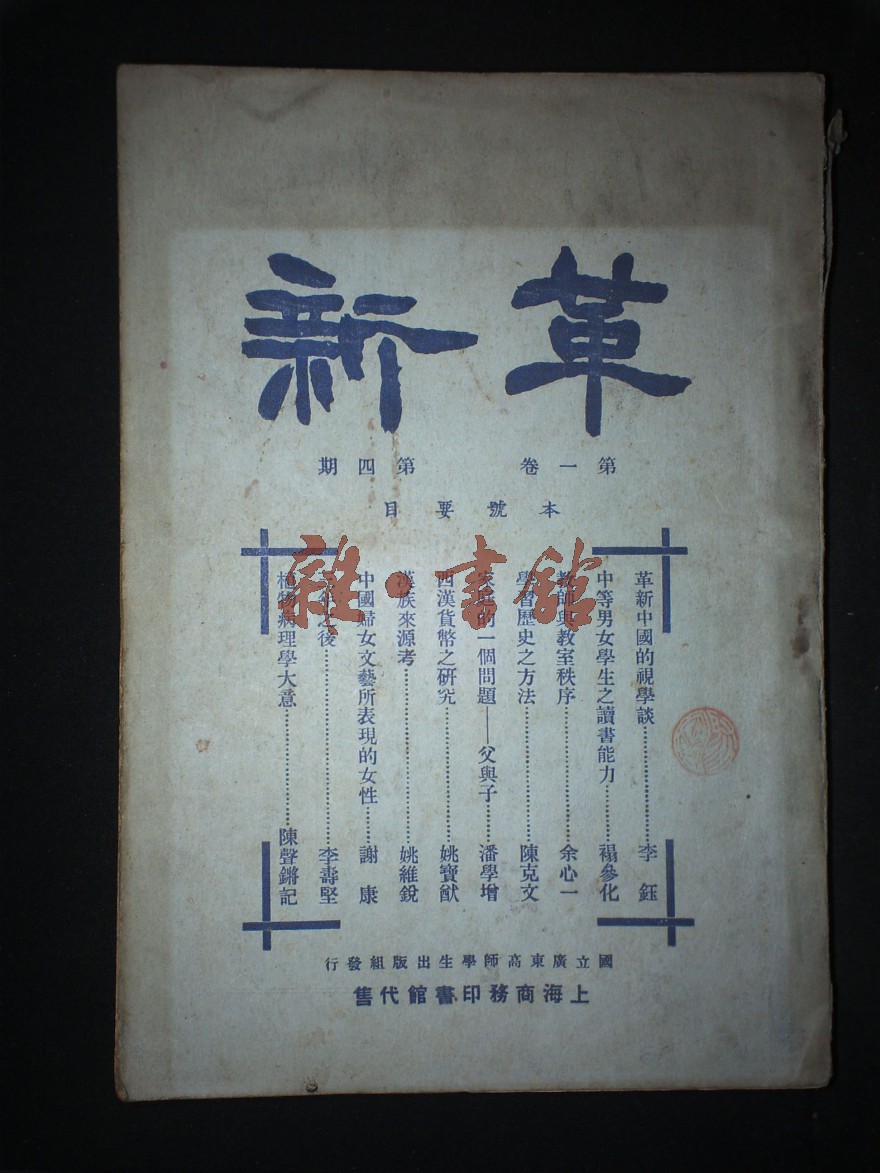 革新
第一卷 第四期
本號要目
革新中國的視學談……李鈺
中等男女學生之讀書能力……禤參化
教師與教室秩序……余心一
學習歷史之方法……陳克文
家庭的一個問題——父與子……潘學增
西漢貨幣之研究……姚寶猷
漢族來源考……姚維銳
中國婦女文藝所表現的女性……謝康
之後……李壽堅
植物病理學大意……陳聲鏘記
國立廣東高師學生出版組發行
上海商務印書館代售
雜·書館